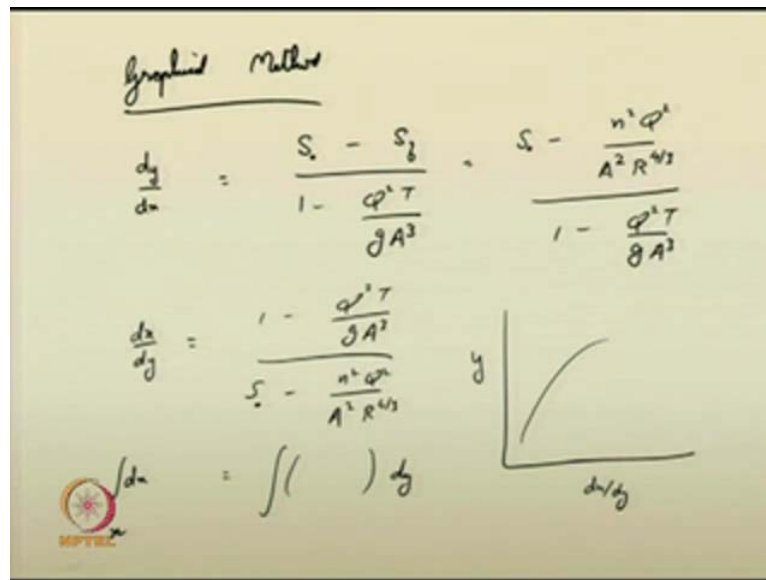 Graphical Method
dy/dx = (S₀ - S_f) / (1 - Q²T/gA³) = (S₀ - n²Q²/(A²R^(4/3))) / (1 - Q²T/gA³)
dx/dy = (1 - Q²T/gA³) / (S₀ - n²Q²/(A²R^(4/3)))
y
dx/dy
∫dx = ∫( ) dy
x
NPTEL